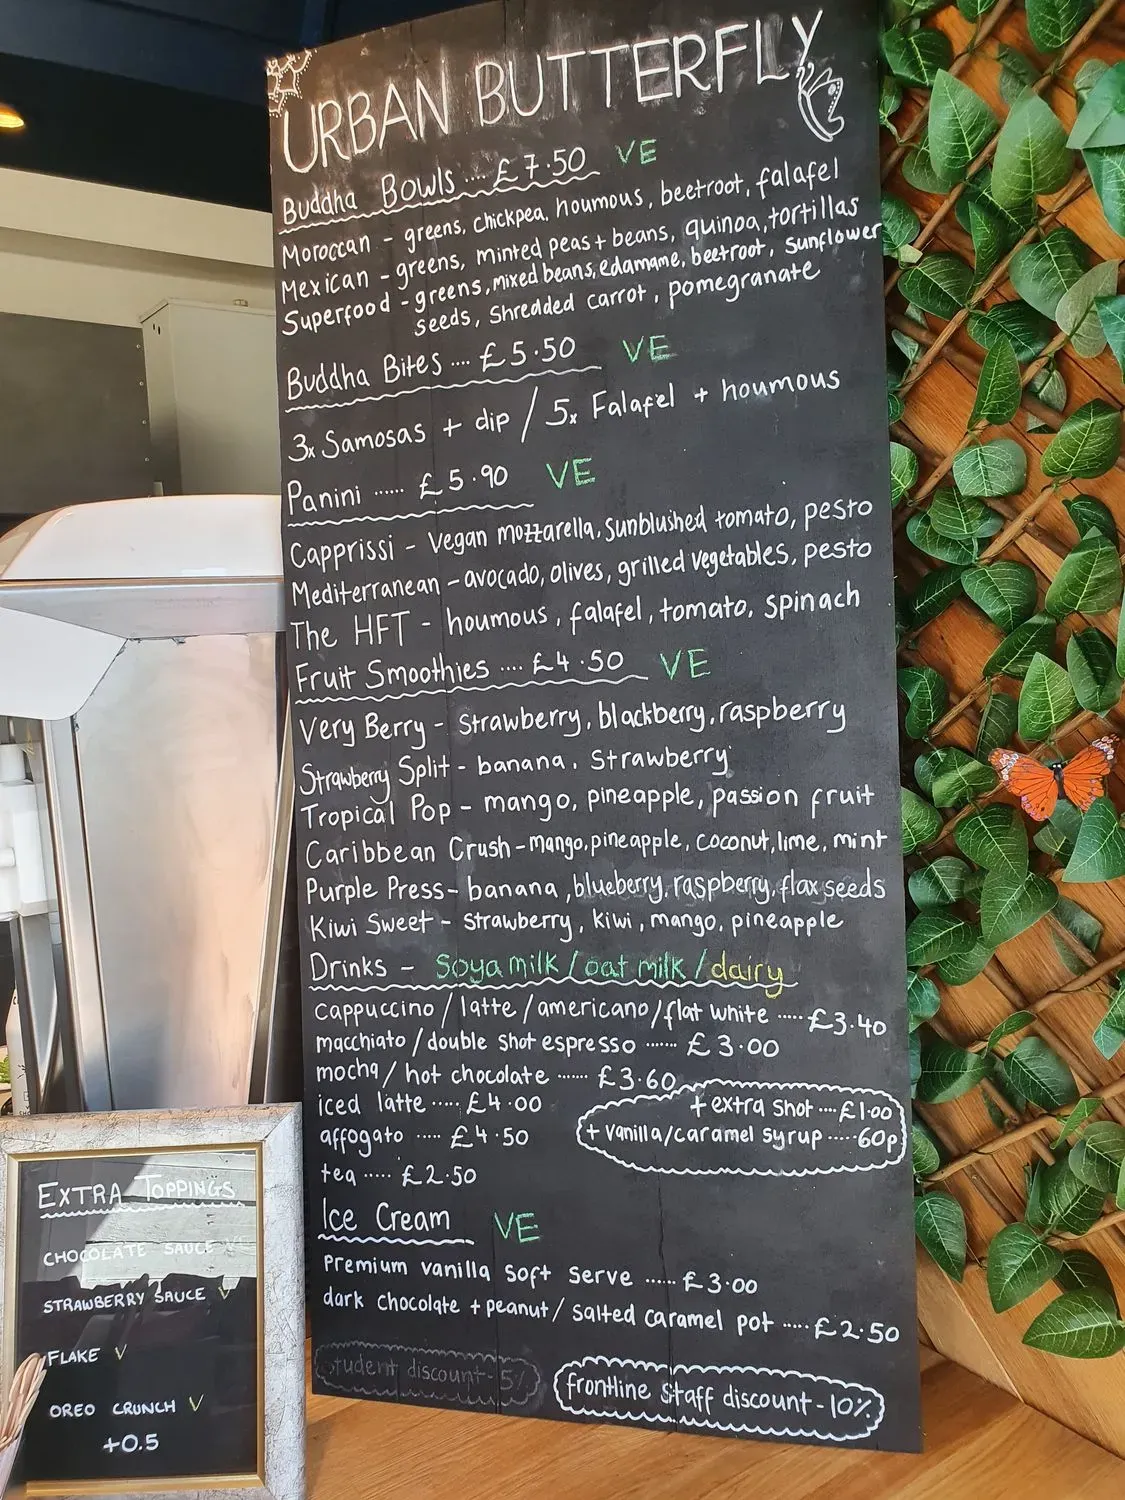 URBAN BUTTERFLY
Buddha Bowls .... £7.50 VE
Moroccan - greens, chickpea, houmous, beetroot, falafel
Mexican - greens, minted peas + beans, quinoa, tortillas
Superfood - greens, mixed beans, edamame, beetroot, sunflower
seeds, shredded carrot, pomegranate
Buddha Bites .... £5.50 VE
3x Samosas + dip / 5x Falafel + houmous
Panini ...... £5.90 VE
Capprissi - vegan mozzarella, sunblushed tomato, pesto
Mediterranean - avocado, olives, grilled vegetables, pesto
The HFT - houmous, falafel, tomato, spinach
Fruit Smoothies .... £4.50 VE
Very Berry - strawberry, blackberry, raspberry
Strawberry Split - banana, strawberry
Tropical Pop - mango, pineapple, passion fruit
Caribbean Crush - mango, pineapple, coconut, lime, mint
Purple Press - banana, blueberry, raspberry, flaxseeds
Kiwi Sweet - strawberry, kiwi, mango, pineapple
Drinks - Soya milk / oat milk / dairy
cappuccino / latte / americano / flat white ..... £3.40
macchiato / double shot espresso ...... £3.00
mocha / hot chocolate ....... £3.60
iced latte ..... £4.00
+ extra shot .... £1.00
affogato ..... £4.50
+ vanilla/caramel syrup ..... 60p
tea ..... £2.50
Ice Cream VE
premium vanilla soft serve ...... £3.00
dark chocolate + peanut / salted caramel pot ..... £2.50
student discount - 5%
frontline staff discount - 10%
EXTRA TOPPINGS
CHOCOLATE SAUCE VE
STRAWBERRY SAUCE V
FLAKE V
OREO CRUNCH V
+0.5